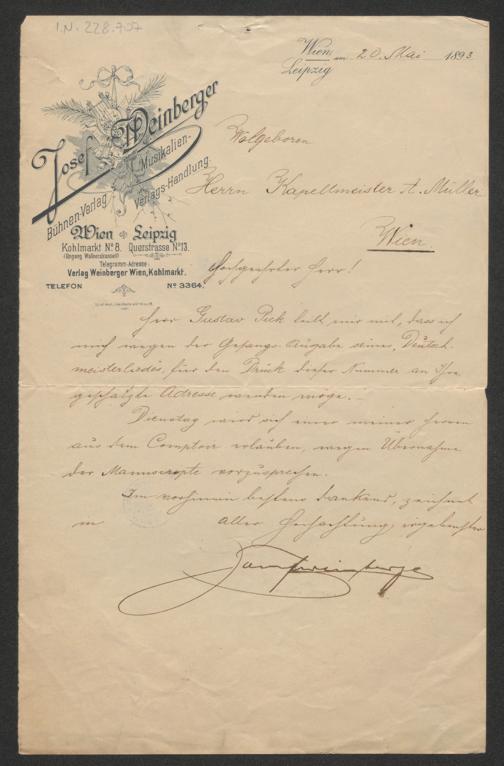 I.N. 228.707
Wien, am 20. Mai 1893
Leipzig
Josef Weinberger
Musikalien-
Bühnen-Verlag Verlags-Handlung.
Wien Leipzig
Kohlmarkt No 8. Querstrasse No 13.
(Eingang Wallnerstrasse)
Telegramm-Adresse:
Verlag Weinberger Wien, Kohlmarkt.
TELEFON No 3364.
Wolgeboren
Herrn Kapellmeister A. Müller
Wien
Hochgeehrter Herr!
Herr Gustav Pick teilt mir mit, dass ich
mich wegen der Gesangs-Ausgabe seines Deutsch-
meisterliedes, für den Druck dieser Nummer an Ihre
geschätzte Adresse wenden möge. –
Dienstag wird sich einer meiner Herren
aus dem Comptoir erlauben, wegen Übernahme
der Manuscripte vorzusprechen.
Im vorhinein bestens dankend, zeichnet
in aller Hochachtung, ergebenster
Josef Weinberger